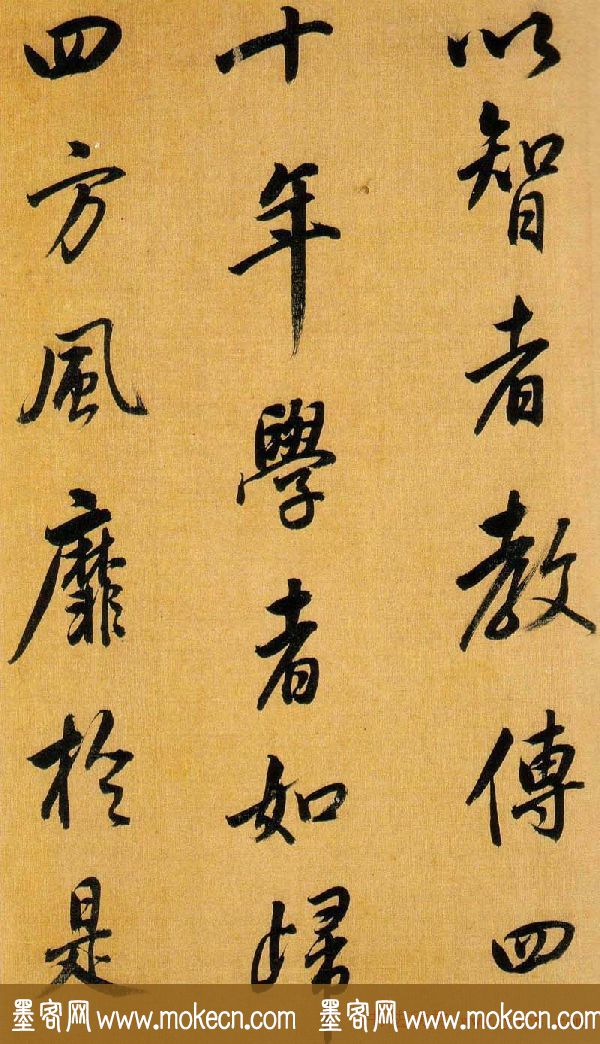 以智者教傳四
十年學者如歸
四方風靡於是
墨客网 www.mokecn.com 墨客网 www.mokecn.com